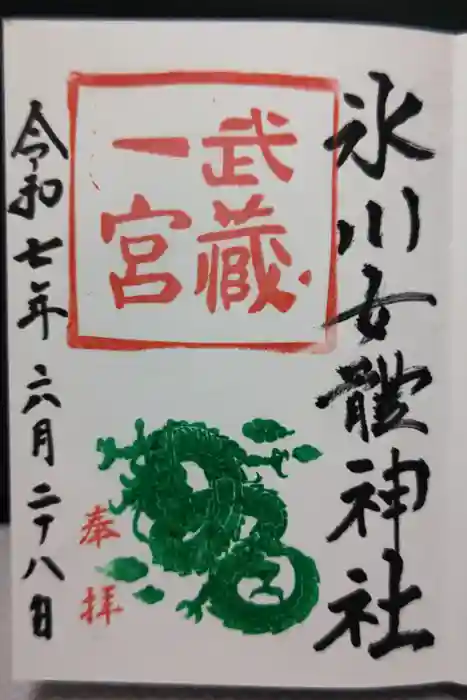 氷川女體神社
武蔵
一宮
奉拝
令和七年六月二十八日